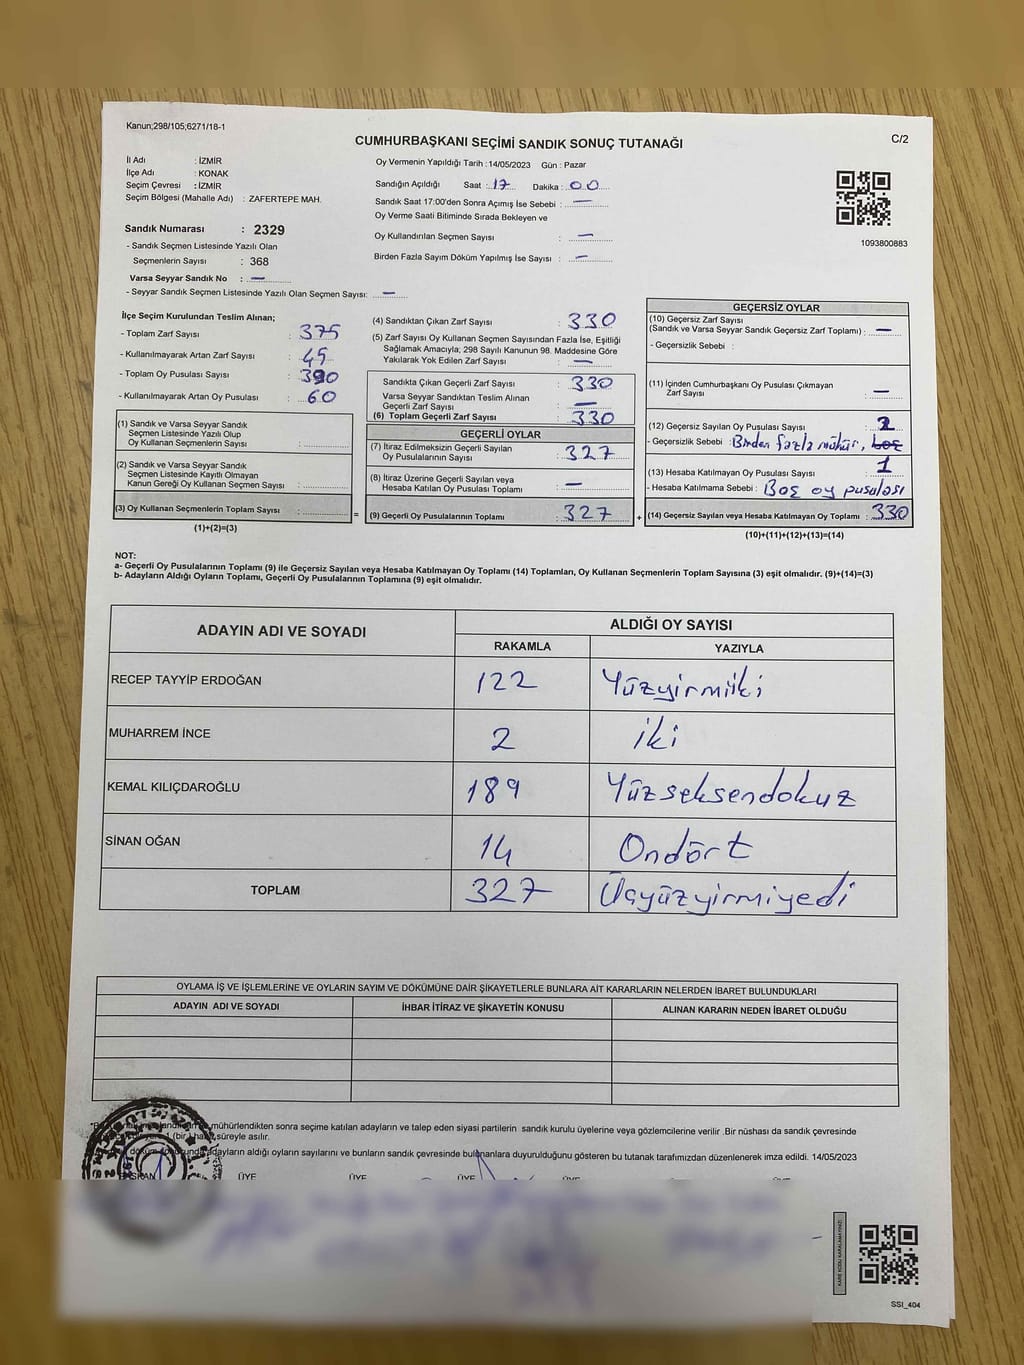 Kanun;298/105;6271/18-1
CUMHURBAŞKANI SEÇİMİ SANDIK SONUÇ TUTANAĞI
C/2
İl Adı : İZMİR
İlçe Adı : KONAK
Seçim Çevresi : İZMİR
Seçim Bölgesi (Mahalle Adı) : ZAFERTEPE MAH.
Sandık Numarası : 2329
- Sandık Seçmen Listesinde Yazılı Olan
Seçmenlerin Sayısı : 368
Varsa Seyyar Sandık No : —
- Seyyar Sandık Seçmen Listesinde Yazılı Olan Seçmen Sayısı: —
Oy Vermenin Yapıldığı Tarih :14/05/2023 Gün : Pazar
Sandığın Açıldığı Saat : 17 Dakika : 00
Sandık Saat 17:00'den Sonra Açımış İse Sebebi : —
Oy Verme Saati Bitiminde Sırada Bekleyen ve
Oy Kullandırılan Seçmen Sayısı : —
Birden Fazla Sayım Döküm Yapılmış İse Sayısı : —
1093800883
İlçe Seçim Kurulundan Teslim Alınan;
- Toplam Zarf Sayısı : 375
- Kullanılmayarak Artan Zarf Sayısı : 45
- Toplam Oy Pusulası Sayısı : 390
- Kullanılmayarak Artan Oy Pusulası : 60
(1) Sandık ve Varsa Seyyar Sandık
Seçmen Listesinde Yazılı Olup
Oy Kullanan Seçmenlerin Sayısı :
(2) Sandık ve Varsa Seyyar Sandık
Seçmen Listesinde Kayıtlı Olmayan
Kanun Gereği Oy Kullanan Seçmen Sayısı :
(3) Oy Kullanan Seçmenlerin Toplam Sayısı :
(1)+(2)=(3)
(4) Sandıktan Çıkan Zarf Sayısı : 330
(5) Zarf Sayısı Oy Kullanan Seçmen Sayısından Fazla İse, Eşitliği
Sağlamak Amacıyla; 298 Sayılı Kanunun 98. Maddesine Göre
Yakılarak Yok Edilen Zarf Sayısı : —
Sandıkta Çıkan Geçerli Zarf Sayısı : 330
Varsa Seyyar Sandıktan Teslim Alınan
Geçerli Zarf Sayısı : —
(6) Toplam Geçerli Zarf Sayısı : 330
GEÇERLİ OYLAR
(7) İtiraz Edilmeksizin Geçerli Sayılan
Oy Pusulalarının Sayısı : 327
(8) İtiraz Üzerine Geçerli Sayılan veya
Hesaba Katılan Oy Pusulası Toplamı : —
= (9) Geçerli Oy Pusulalarının Toplamı : 327 +
GEÇERSİZ OYLAR
(10) Geçersiz Zarf Sayısı
(Sandık ve Varsa Seyyar Sandık Geçersiz Zarf Toplamı) : —
- Geçersizlik Sebebi :
(11) İçinden Cumhurbaşkanı Oy Pusulası Çıkmayan
Zarf Sayısı : —
(12) Geçersiz Sayılan Oy Pusulası Sayısı : 2
- Geçersizlik Sebebi : Birden fazla mühür, boş
(13) Hesaba Katılmayan Oy Pusulası Sayısı : 1
- Hesaba Katılmama Sebebi : Boş oy pusulası
(14) Geçersiz Sayılan veya Hesaba Katılmayan Oy Toplamı : 330
(10)+(11)+(12)+(13)=(14)
NOT:
a- Geçerli Oy Pusulalarının Toplamı (9) ile Geçersiz Sayılan veya Hesaba Katılmayan Oy Toplamı (14) Toplamları, Oy Kullanan Seçmenlerin Toplam Sayısına (3) eşit olmalıdır. (9)+(14)=(3)
b- Adayların Aldığı Oyların Toplamı, Geçerli Oy Pusulalarının Toplamına (9) eşit olmalıdır.
ADAYIN ADI VE SOYADI
ALDIĞI OY SAYISI
RAKAMLA YAZIYLA
RECEP TAYYİP ERDOĞAN 122 Yüzyirmiiki
MUHARREM İNCE 2 iki
KEMAL KILIÇDAROĞLU 189 Yüzseksendokuz
SİNAN OĞAN 14 Ondört
TOPLAM 327 Üçyüzyirmiyedi
OYLAMA İŞ VE İŞLEMLERİNE VE OYLARIN SAYIM VE DÖKÜMÜNE DAİR ŞİKAYETLERLE BUNLARA AİT KARARLARIN NELERDEN İBARET BULUNDUKLARI
ADAYIN ADI VE SOYADI İHBAR İTİRAZ VE ŞİKAYETİN KONUSU ALINAN KARARIN NEDEN İBARET OLDUĞU
mühürlendikten sonra seçime katılan adayların ve talep eden siyasi partilerin sandık kurulu üyelerine veya gözlemcilerine verilir .Bir nüshası da sandık çevresinde
1 (bir) hafta süreyle asılır.
adayların aldığı oyların sayılarını ve bunların sandık çevresinde bulunanlara duyurulduğunu gösteren bu tutanak tarafımızdan düzenlenerek imza edildi. 14/05/2023
BAŞKAN ÜYE ÜYE ÜYE ÜYE ÜYE
KARE KODU KARALAMAYINIZ!
SSI_404